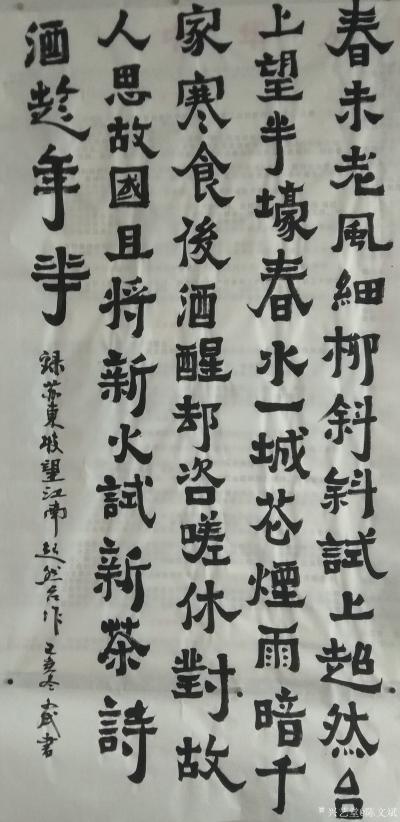 春未老風細柳斜斜試上超然台
上望半壕春水一城花煙雨暗千
家寒食後酒醒却咨嗟休對故
人思故國且將新火試新茶詩
酒趁年華
録苏東坡望江南超然台作 己亥冬 書
兴艺堂@陈文斌